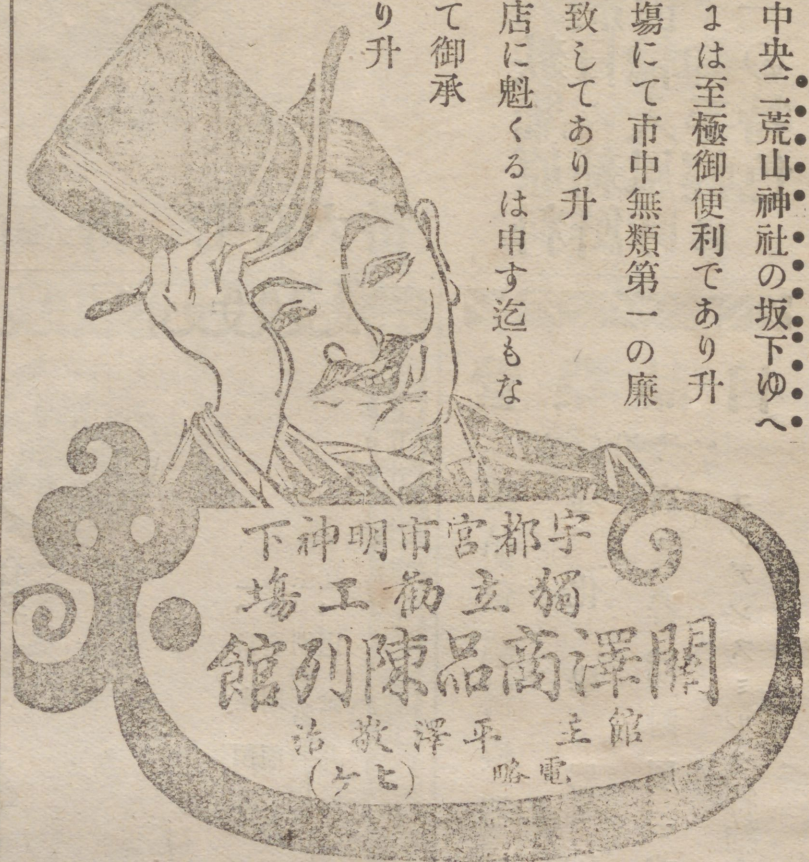 中央二荒山神社の坂下ゆへ
は至極御便利であり升
塲にて市中無類第一の廉
致してあり升
店に魁くるは申す迄もな
て御承
り升
宇都宮市明神下
獨立勧工塲
關澤商品陳列館
館主 平澤敬治
電略(ヒケ)